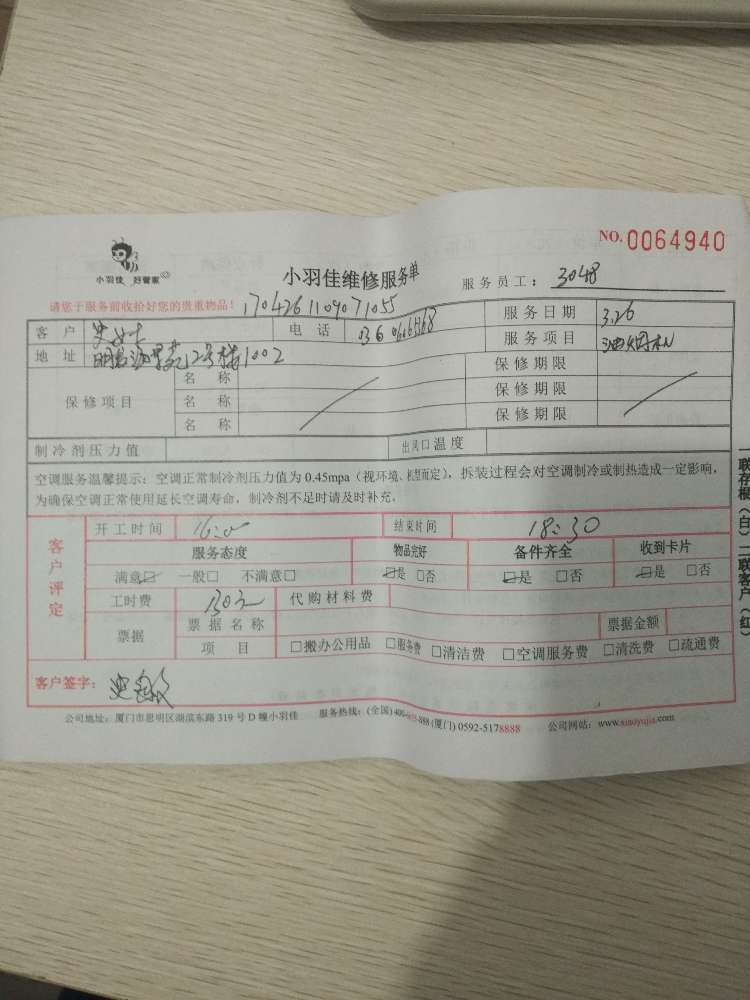 NO. 0064940
小羽佳 好管家
小羽佳维修服务单
服务员工： 3048
请您于服务前收拾好您的贵重物品！ 1704261109071055
客 户 史女士 电 话 服务日期 3.26
地 址 2号楼1002 服务项目 油烟机
保修项目 名 称 保修期限
名 称 保修期限
名 称 保修期限
制冷剂压力值 出风口温度
空调服务温馨提示：空调正常制冷剂压力值为 0.45mpa（视环境、机型而定），拆装过程会对空调制冷或制热造成一定影响，
为确保空调正常使用延长空调寿命，制冷剂不足时请及时补充。
客户评定
开工时间 16:00 结束时间 18:30
服务态度 物品完好 备件齐全 收到卡片
满意☑ 一般□ 不满意□ ☑是 □否 ☑是 □否 ☑是 □否
工时费 130元 代购材料费
票据 票据名称 票据金额
项 目 □搬办公用品 □服务费 □清洁费 □空调服务费 □清洗费 □流通费
客户签字： 史
公司地址：厦门市思明区湖滨东路 319 号 D 幢小羽佳 服务热线：(全国) 400-888 (厦门) 0592-5178888 公司网站：www.xiaoyujia.com
一联存根（白）二联客户（红）